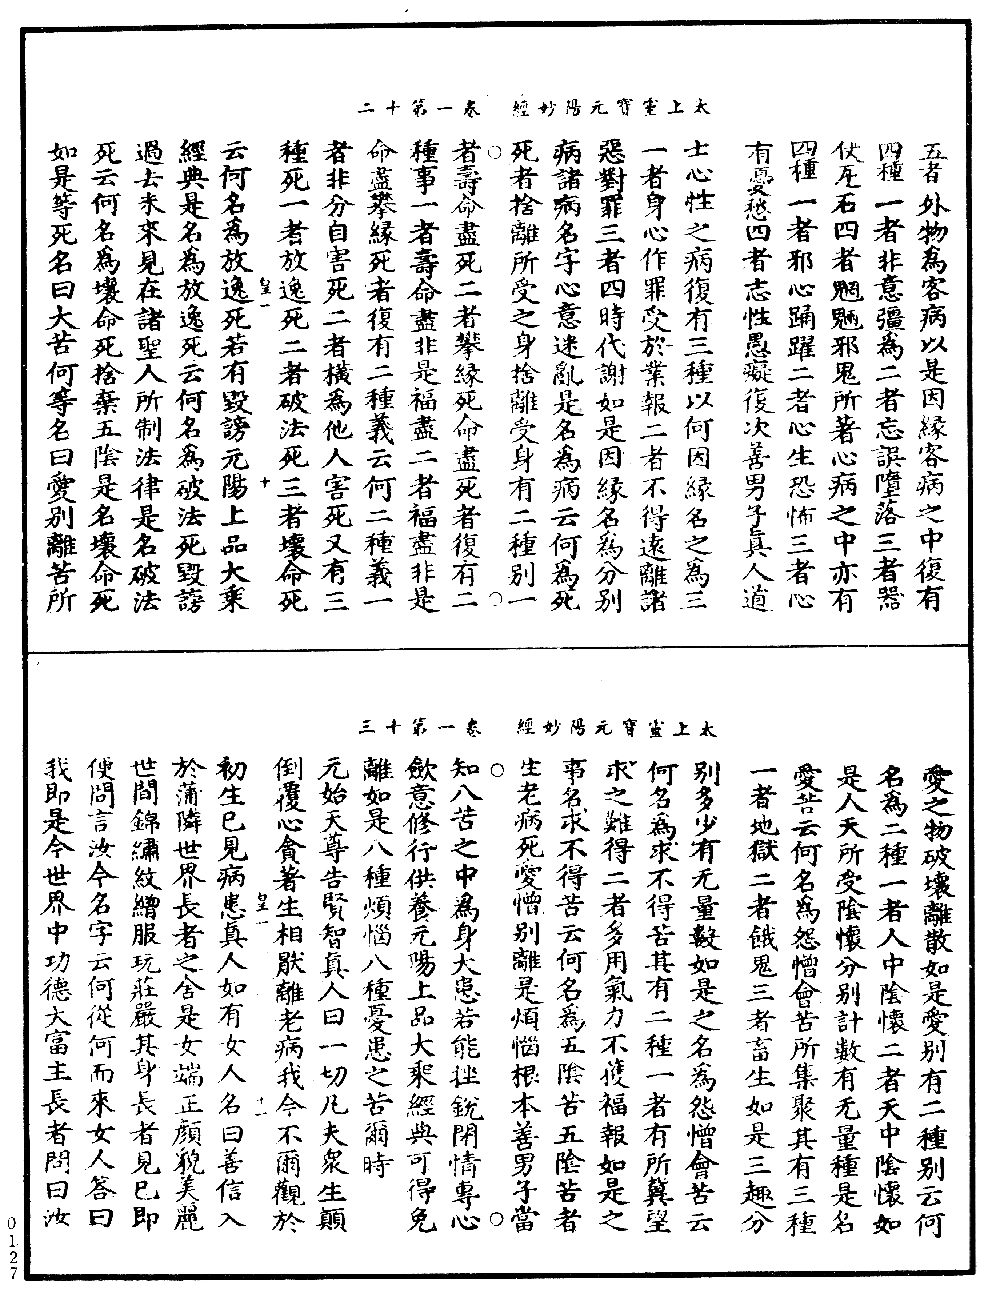 太上靈寶元陽妙經　卷一第十二
五者外物為客病以是因緣客病之中復有
四種一者非意彊為二者忘誤墮落三者器
仗瓦石四者魍魎邪鬼所著心病之中亦有
四種一者邪心踊躍二者心生恐怖三者心
有憂愁四者志性愚癡復次善男子真人道
士心性之病復有三種以何因緣名之為三
一者身心作罪受於業報二者不得遠離諸
惡對罪三者四時代謝如是因緣名為分別
病諸病名字心意迷亂是名為病云何為死
死者捨離所受之身捨離受身有二種別一
者壽命盡死二者攀緣死命盡死者復有二
種事一者壽命盡非是福盡二者福盡非是
命盡攀緣死者復有二種義云何二種義一
者非分自害死二者橫為他人害死又有三
種死一者放逸死二者破法死三者壞命死
皇一　十
云何名為放逸死若有毀謗元陽上品大乘
經典是名為放逸死云何名為破法死毀謗
過去未來見在諸聖人所制法律是名破法
死云何名為壞命死捨棄五陰是名壞命死
如是等死名曰大苦何等名曰愛別離苦所
太上靈寶元陽妙經　卷一第十三
愛之物破壞離散如是愛別有二種別云何
名為二種一者人中陰懷二者天中陰懷如
是人天所受陰懷分別計數有无量種是名
愛苦云何名為怨憎會苦所集聚其有三種
一者地獄二者餓鬼三者畜生如是三趣分
別多少有无量數如是之名為怨憎會苦云
何名為求不得苦其有二種一者有所兾望
求之難得二者多用氣力不獲福報如是之
事名求不得苦云何名為五陰苦五陰苦者
生老病死愛憎别離是煩惱根本善男子當
知八苦之中為身大患若能挫銳閉情專心
歛意修行供養元陽上品大乘經典可得免
離如是八種煩惱八種憂患之苦爾時
元始天尊告賢智真人曰一切凡夫衆生顛
倒覆心貪著生相厭離老病我今不爾觀於
皇一　十一
初生已見病患真人如有女人名曰善信入
於蒲隣世界長者之舍是女端正顏貌美麗
世間錦繡紋繒服玩莊嚴其身長者見已即
便問言汝今名字云何從何而來女人答曰
我即是今世界中功德大富主長者問曰汝
0127